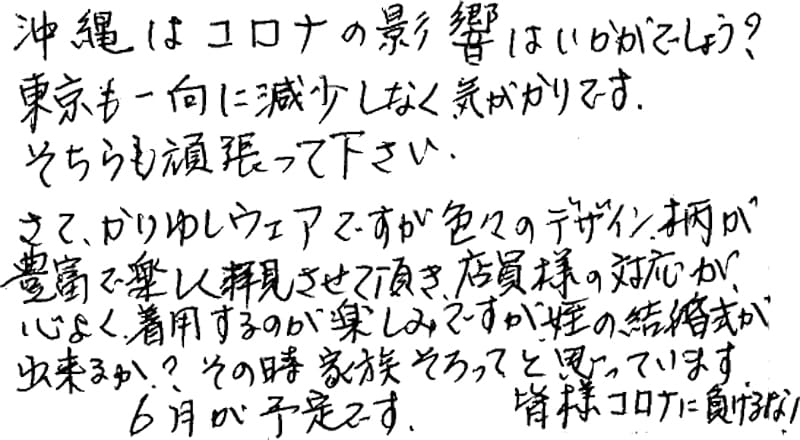 沖縄はコロナの影響はいかがでしょう?
東京も一向に減少しなく気がかりです.
そちらも頑張って下さい.
さて、かりゆしウェアですが色々のデザイン、柄が
豊富で楽しく拝見させて頂き、店員様の対応が、
心よく、着用するのが楽しみですが姪の結婚式が
出来るか?その時家族そろってと思っています.
6月が予定です. 皆様コロナに負けるな!